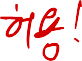 허용!